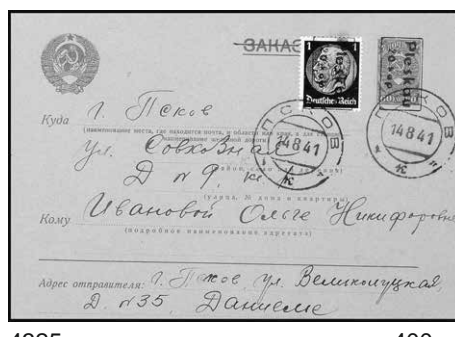 ЗАКАЗ
1
Pleskau
20 коп
Deutsches Reich
ПСКОВ
14 8 41
ПСКОВ
14 8 41
Куда г. Псков
(наименование места, где находится почта, и области или края, а для станций
наименование железной дороги)
Ул. Совхозная
Д № 9, кв
(улица, № дома и квартиры)
Кому Ивановой Ольге Никифоровне
(подробное наименование адресата)
Адрес отправителя: г. Псков, ул. Великолуцкая,
Д. № 35, Даниеме